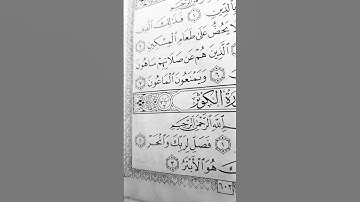 بِالدِّينِ ۝١ فَذَٰلِكَ الَّذِي
يَحُضُّ عَلَىٰ طَعَامِ الْمِسْكِينِ ۝٣
الَّذِينَ هُمْ عَن صَلَاتِهِمْ سَاهُونَ
۝٦ وَيَمْنَعُونَ الْمَاعُونَ
سُورَةُ الْكَوْثَرِ
اللَّهِ الرَّحْمَٰنِ الرَّحِيمِ
۝١ فَصَلِّ لِرَبِّكَ وَانْحَرْ ۝٢
هُوَ الْأَبْتَرُ ۝٣
٦٠٢